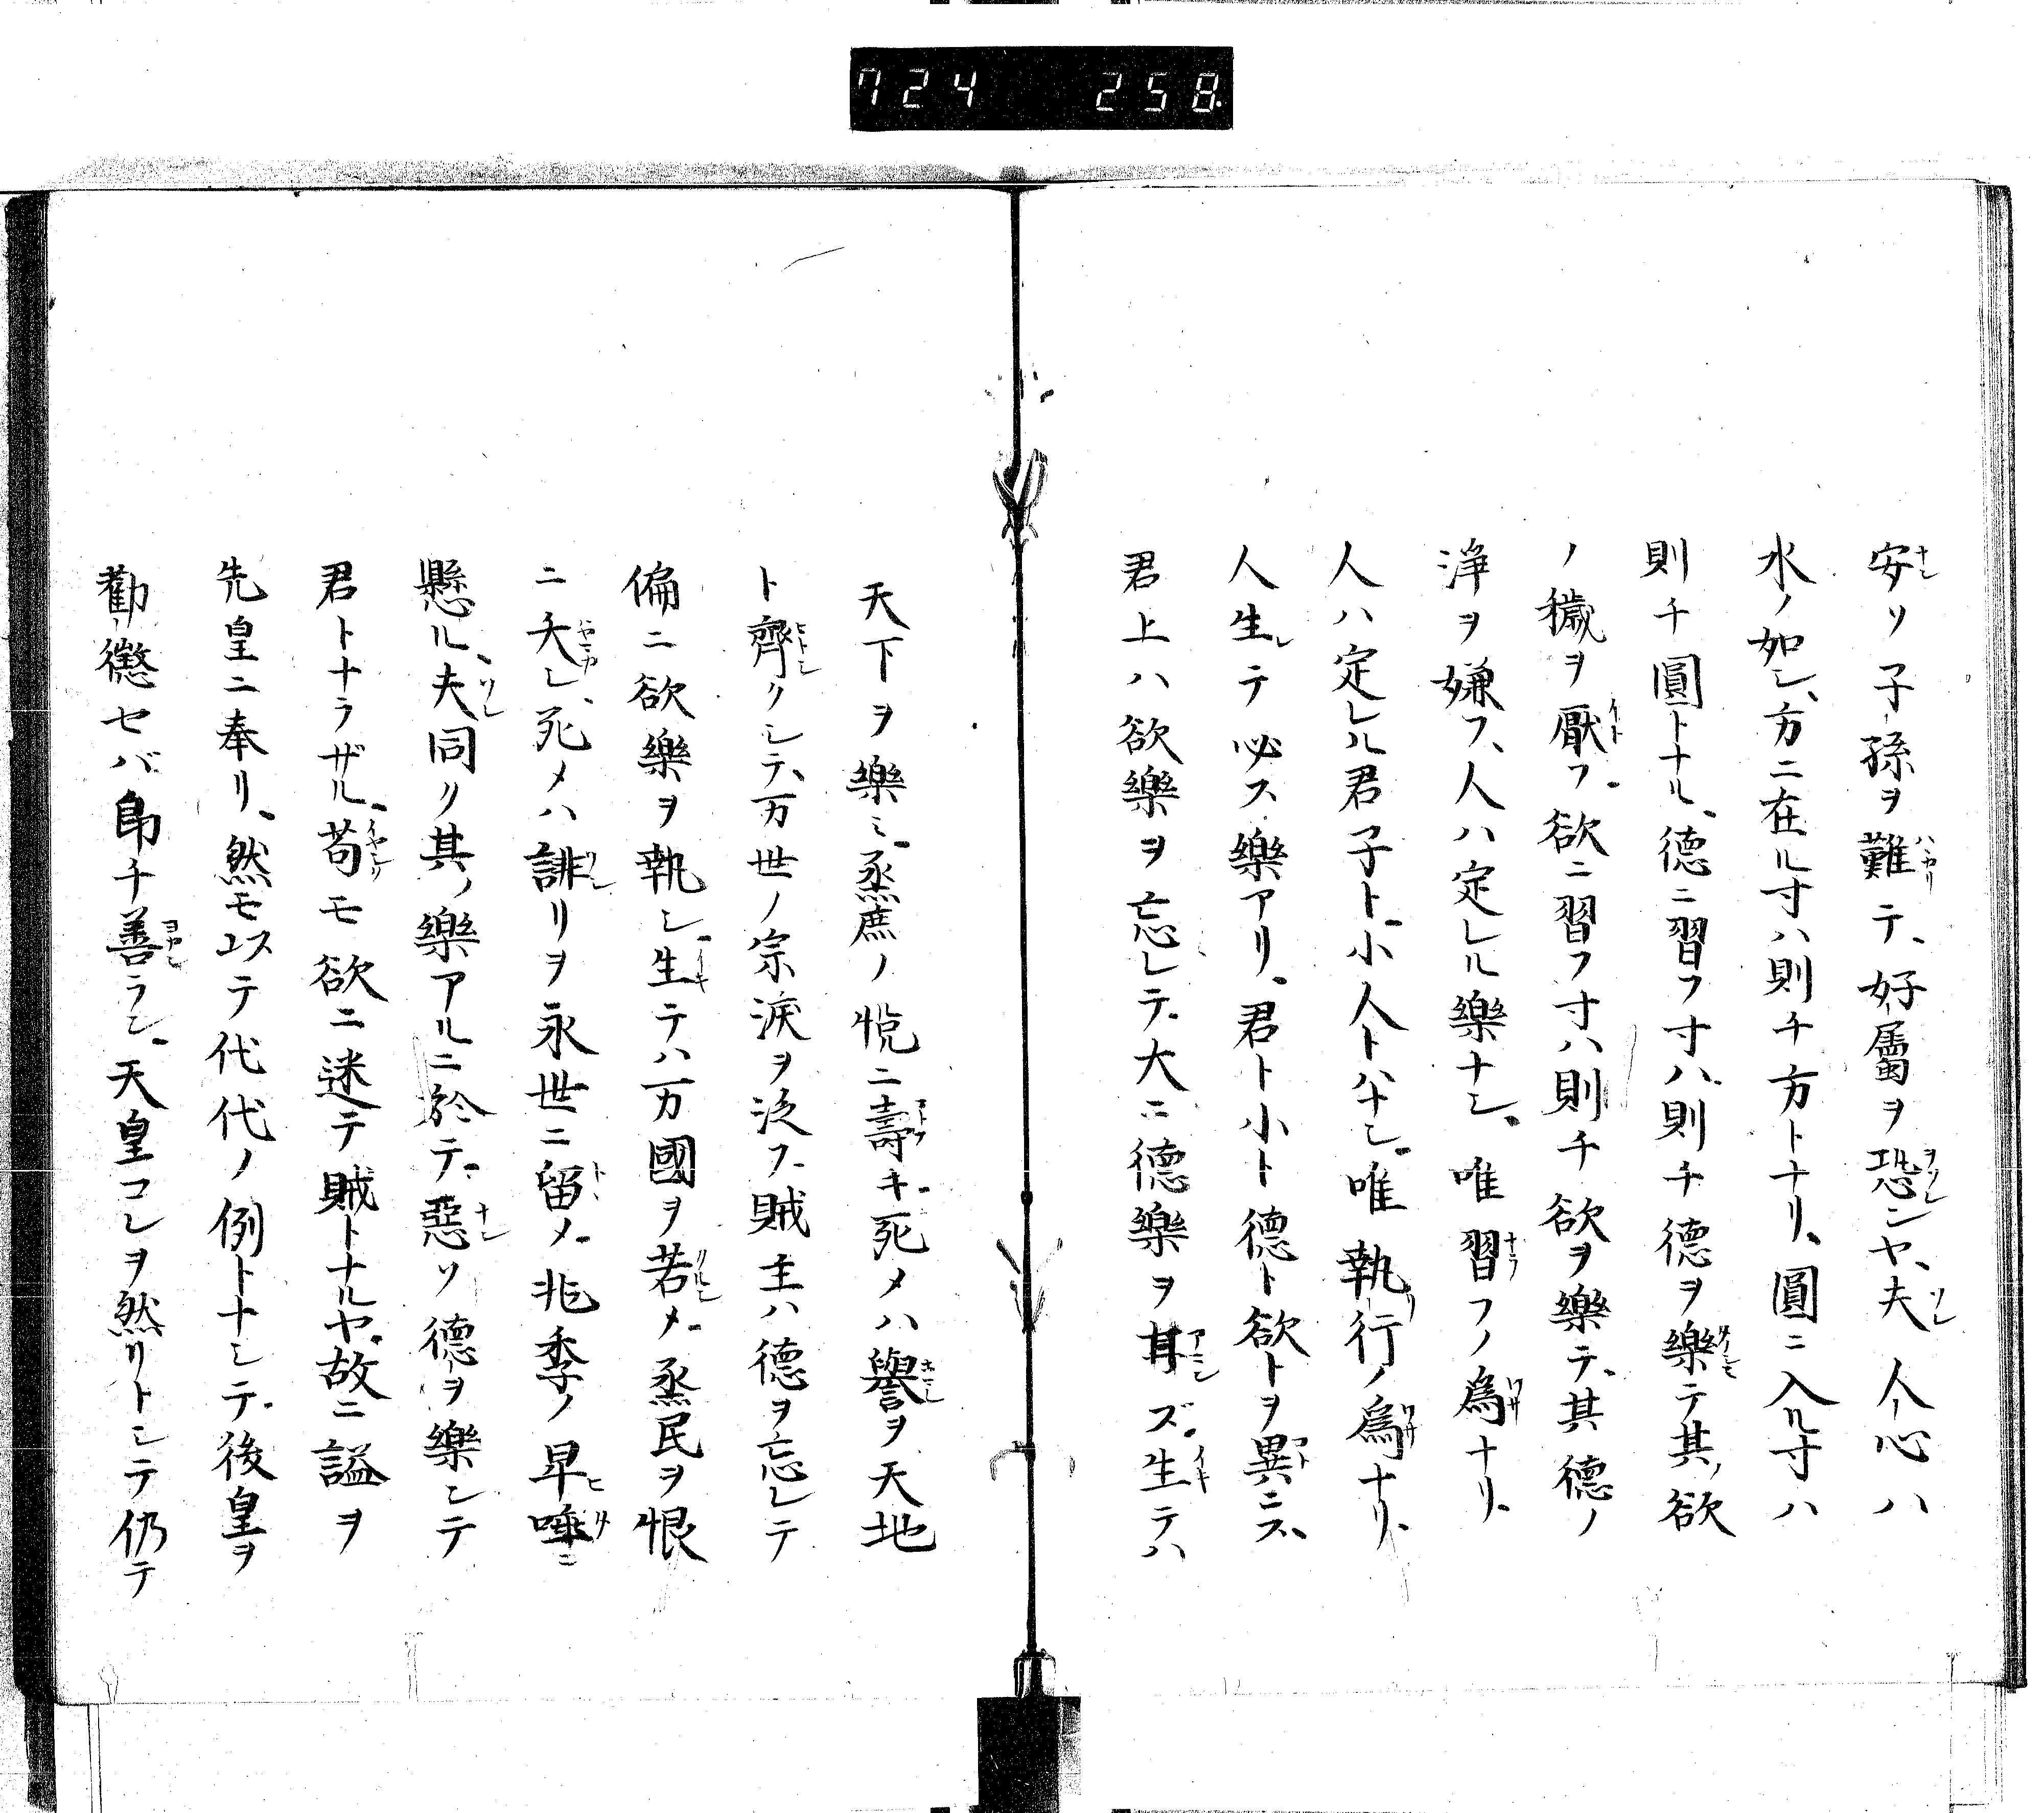 724 258
安ソ子孫ヲ難テ、好屬ヲ恐ンヤ、夫人心ハ
水ノ如シ、方ニ在ル寸ハ則チ方トナリ、圓ニ入ル寸ハ
則チ圓トナル、德ニ習フ寸ハ則チ德ヲ樂テ其ノ欲
ノ穢ヲ厭フ、欲ニ習フ寸ハ則チ欲ヲ樂テ、其德ノ
淨ヲ嫌フ、人ハ定レル樂ナシ、唯習フノ為ナリ、
人ハ定レル君子ト、小人トハナシ、唯執行ノ為ナリ、
人生テ必ス樂アリ、君ト小ト德ト欲トヲ異ニス、
君上ハ欲樂ヲ忘レテ、大ニ德樂ヲ甘ズ、生テハ
天下ヲ樂ミ、烝庶ノ悦ニ壽キ、死メハ譽ヲ天地
ト齊クシテ、万世ノ宗淚ヲ泛フ、賊主ハ德ヲ忘レテ
偏ニ欲樂ヲ執シ、生テハ万國ヲ若メ、烝民ヲ恨
ニ夭シ、死メハ誹リヲ永世ニ留メ、兆季ノ唾ニ
懸ル、夫同ク其ノ樂アルニ於テ、惡ソ德ヲ樂シテ
君トナラザル、苟モ欲ニ迷テ賊トナルヤ、故ニ謚ヲ
先皇ニ奉リ、然モ以テ代代ノ例トナシテ、後皇ヲ
勸懲セバ即チ善ラン、天皇コレヲ然リトシテ仍テ